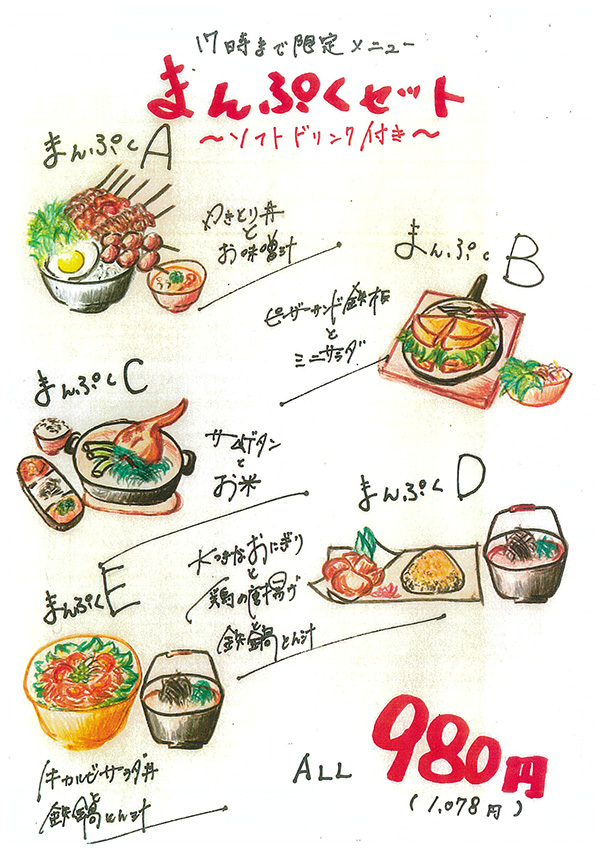 17時まで限定メニュー
まんぷくセット
～ソフトドリンク付き～
まんぷくA
やきとり丼
と
お味噌汁
まんぷくB
ピザーサンド鉄板
と
ミニサラダ
まんぷくC
サムゲタン
と
お米
まんぷくD
大きなおにぎり
と
鶏の唐揚げ
と
鉄鍋とん汁
まんぷくE
牛カルビサラダ丼
と
鉄鍋とん汁
ALL 980円
(1,078円)